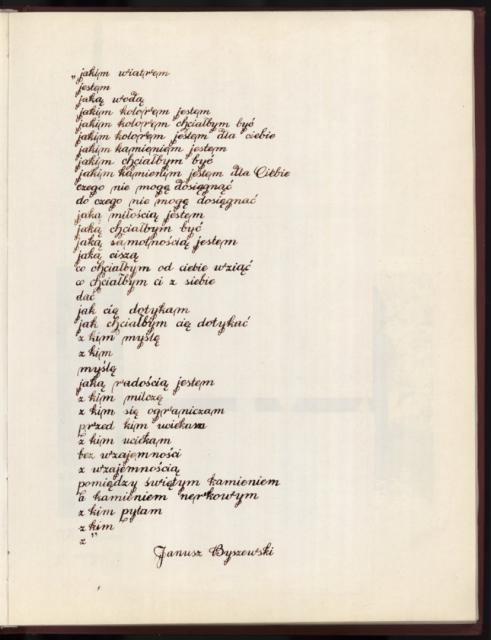 „jakim wiatrem
jestem
jaką wodą
jakim kolorem jestem
jakim kolorem chciałbym być
jakim kolorem jestem dla ciebie
jakim kamieniem jestem
jakim chciałbym być
jakim kamieniem jestem dla Ciebie
czego nie mogę dosięgnąć
do czego nie mogę dosięgnać
jaką miłością jestem
jaką chciałbym być
jaką samotnością jestem
jaką ciszą
co chciałbym od ciebie wziąć
co chciałbym ci z siebie
dać
jak cię dotykam
jak chciałbym cię dotykać
z kim myślę
z kim
myślę
jaką radością jestem
z kim milczę
z kim się ograniczam
przed kim uciekam
z kim uciekam
bez wzajemności
z wzajemnością
pomiędzy świętym kamieniem
a kamieniem nerkowym
z kim pytam
z kim
z"
Janusz Byszewski